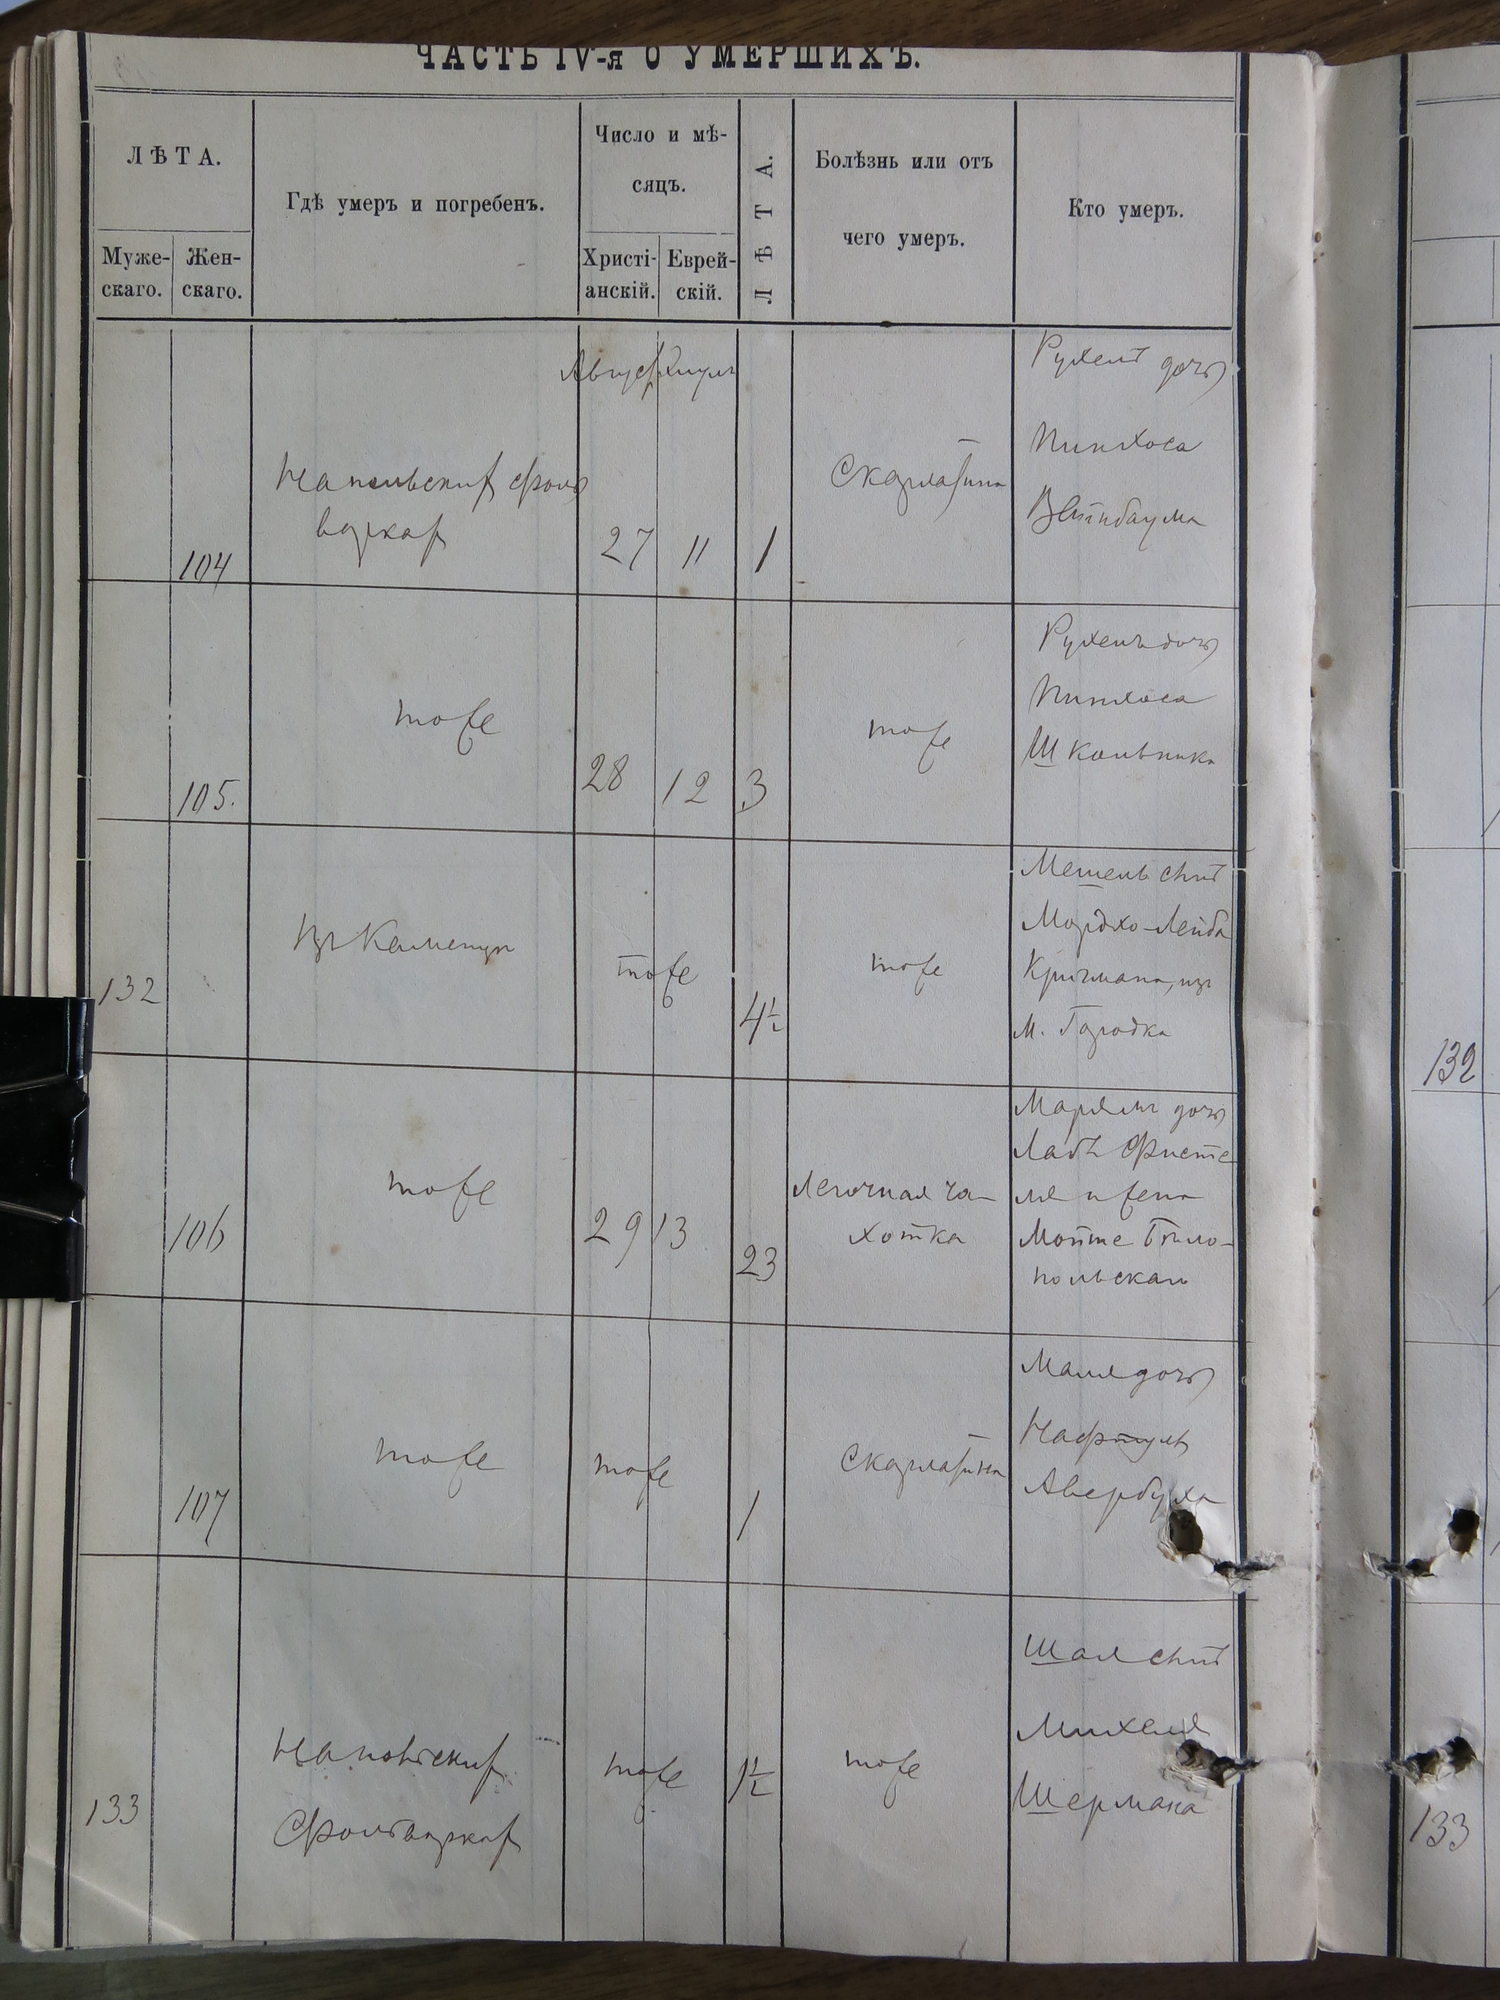 ЧАСТЬ IV-я О УМЕРШИХЪ.
ЛѢТА.
Муже-
скаго.
Жен-
скаго.
Гдѣ умеръ и погребенъ.
Число и мѣ-
сяцъ.
Христі-
анскій.
Еврей-
скій.
ЛѢТА.
Болѣзнь или отъ
чего умеръ.
Кто умеръ.
104
27
11
1
Скарлатина
Рухель дочь
Пинхоса
Вейнбаума
105.
тоже
28
12
3
тоже
Рухель дочь
Пинхоса
Школьника
132
тоже
4½
тоже
Мешель сынъ
Мордхо-Лейба
Кричмана, изъ
м. Городка
106
тоже
29
13
23
легочная ча-
хотка
Марьямъ дочь
жена
Мойше Бѣло-
польскаго
107
тоже
тоже
1
Скарлатина
Маля дочь
Нафтуль
Авербуха
133
тоже
1½
тоже
Шая сынъ
Михеля
Шермана
132
133